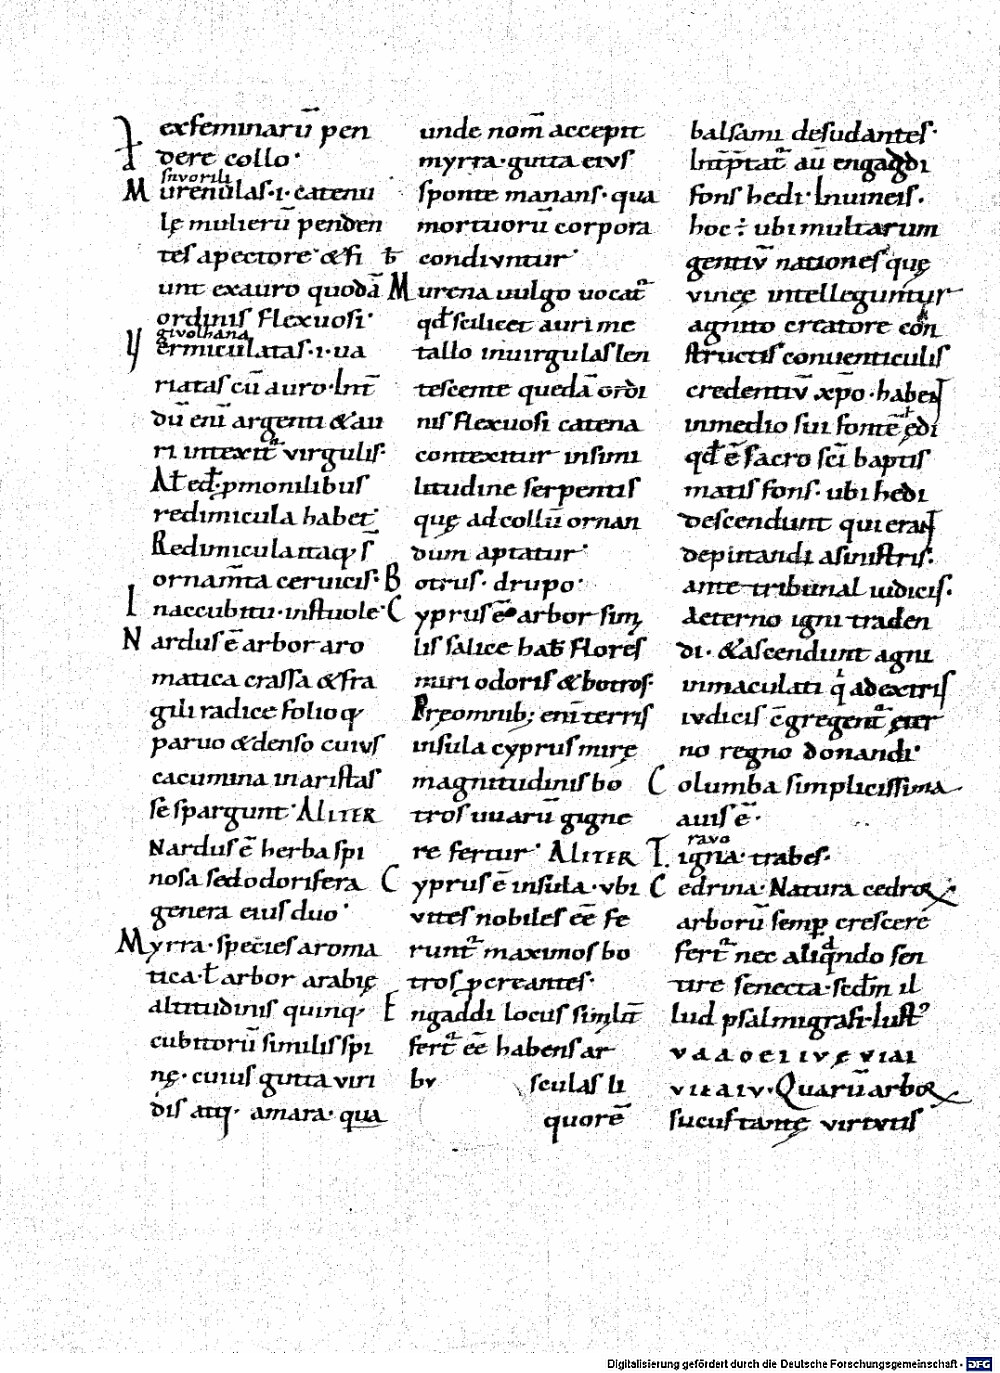 ex feminarū pen
dere collo·
snuorili
Murenulas·i·catenu
lę mulierū penden
tes apectore· &fi
unt exauro quodā
ordinis flexuosi·
givolhana
Vermiculatas·i·ua
riatas cū auro·Int̄
dū eni argenti &au
ri intexit virgulis·
redimicula habet·
Redimicula itaq; s̄
ornam̄ta ceruicis·
In accubitu·in stuole·
Nardus ē arbor aro
matica crassa &fra
gili radice folioq;
paruo &denso cuius
cacumina in aristas
se spargunt· ALITER
Nardus ē herba spi
nosa sed odorifera
genera eius duo·
Myrra·species aroma
tica·ł arbor arabię
altitudinis quinq;
cubitorū similis spi
nę·cuius gutta viri
dis atq;· amara·qua
unde nom̄ accepit
myrra·gutta eius
sponte manans·qua
mortuorū corpora
condiuntur·
Murena uulgo uocat̄
qđ scilicet auri me
tallo in uirgulas len
tescente quedā ordi
nis flexuosi catena
contexitur insimi
litudine serpentis
quę ad collū ornan
dum aptatur·
Botrus· drupo·
Cyprus ē arbor simi
lis salice hab& flores
miri odoris &botros·
Pręomnib; eni terris
insula cyprus mirę
magnitudinis bo
tros uuarū gigne
re fertur· ALITER
Cyprus ē insula·ubi
vites nobiles eē fe
runt̄ maximos bo
tros pcreantes·
Engaddi locus
fert̄ eē habens ar
bu sculas li
quorē
balsami desudantes·
Int̄p̄tat̄ aū engaddi
fons hedi·In uineis·
hoc÷ ubi multarum
gentiū nationes quę
vineę intelleguntur
agnito creatore con
structis conuenticulis
credentiū xp̄o·habent
in medio sui fontē ędi
qđ ē sacro sc̄i baptis
matis fons·ubi hedi
descendunt qui erant
deputandi a sinistris·
ante tribunal iudicis·
aeterno igni traden
di·&ascendunt agni
inmaculati q̇ ad extris
iudicis
no regno donandi·
Columba simplicissima
auis ē·
ravo
Tigna·trabes·
Cedrina·Natura cedroꝝ
arborū semp crescere
fert̄ nec aliqndo sen
tire senecta·
lud psalmigrafi·Iust᾽
vitaiv·Quarū arboꝝ
sucus tantę virtutis
Digitalisierung gefördert durch die Deutsche Forschungsgemeinschaft - DFG